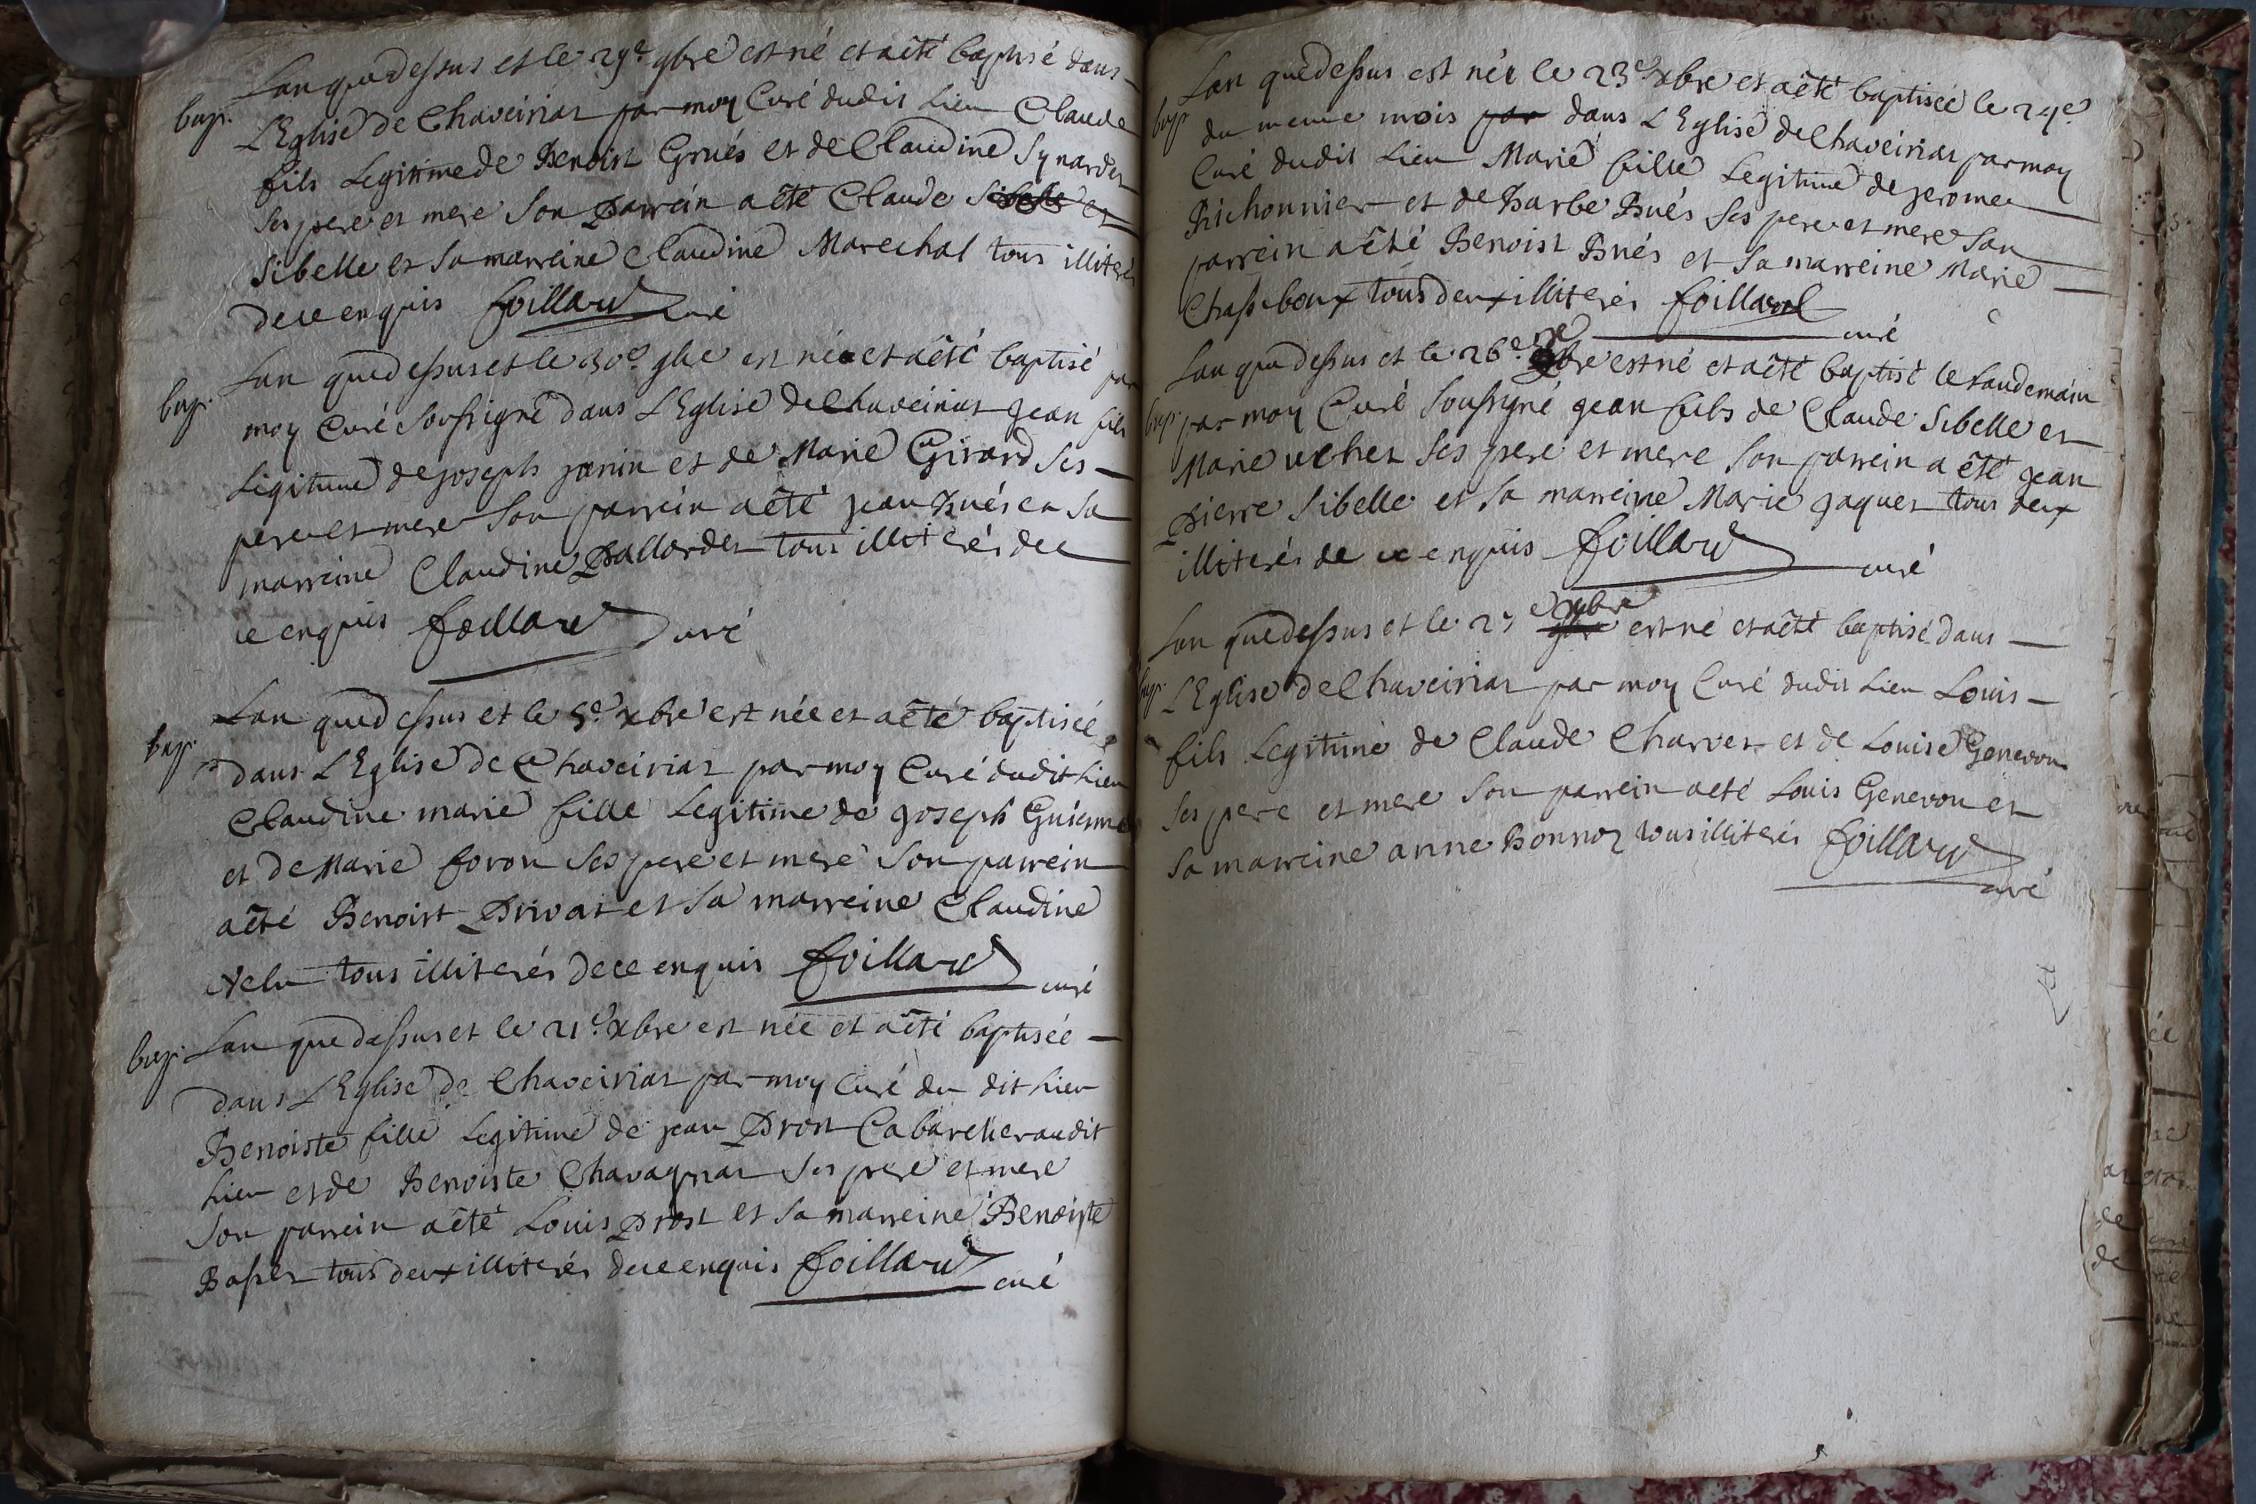 Lan que dessus et le 29e 9bre est né et a êté baptisé dans
bap. L'Eglise de Chaveiriat par moy Curé dudit Lieu Claude
fils Legitime de Benoist Grués et de Claudine Synardet
ses pere et mere son Parrein a êté Claude Sibelle et
Sibelle et sa marreine Claudine Marechal tous illiterés
de ce enquis foillard curé
Lan que dessus et le 30e 9bre est né et a êté baptisé par
bap. moy Curé soussigné dans L'Eglise de Chaveiriat jean fils
Legitime de joseph janin et de Marie Girard ses
pere et mere son parrein a êté jean Bués et sa
marreine Claudine Pallardet tous illiterés de
ce enquis foillard curé
Lan que dessus et le 5e xbre est née et a êté baptisée
bap. dans L'Eglise de Chaveiriat par moy Curé dudit Lieu
Claudine marie fille Legitime de joseph Guienne
et de Marie foron ses pere et mere son parrein
a êté Benoist Privat et sa marreine Claudine
Velu tous illiterés de ce enquis foillard curé
bap. Lan que dessus et le 21e xbre est née et a êté baptisée
dans L'Eglise de Chaveiriat par moy Curé du dit Lieu
Benoiste fille Legitime de jean Prost Cabaretier audit
Lieu et de Benoiste Chavagnat ses pere et mere
son parrein a êté Louis Prost et sa marreine Benoiste
Basset tous deux illiterés de ce enquis foillard curé
Lan que dessus est née le 23e xbre et a êté baptisée le 24e
bap. du meme mois par dans L'Eglise de Chaveiriat par moy
Curé dudit Lieu Marie fille Legitime de jerome
Bichonnier et de Barbe Bués ses pere et mere son
parrein a êté Benoist Bués et sa marreine Marie
Chassiboux tous deux illiterés foillard curé
Lan que dessus et le 26e xbre est né et a êté baptisé le landemain
bap. par moy Curé soussigné jean fils de Claude Sibelle et
Marie ses pere et mere son parrein a êté jean
Pierre Sibelle et sa marreine Marie jaquet tous deux
illiterés de ce enquis foillard curé
Lan que dessus et le 27e xbre est né et a êté baptisé dans
bap. L'Eglise de Chaveiriat par moy Curé dudit Lieu Louis
fils Legitime de Claude Charvet et de Louise Genevon
ses pere et mere son parrein a eté Louis Genevon et
sa marreine anne Bonnoz tous illiterés foillard
curé